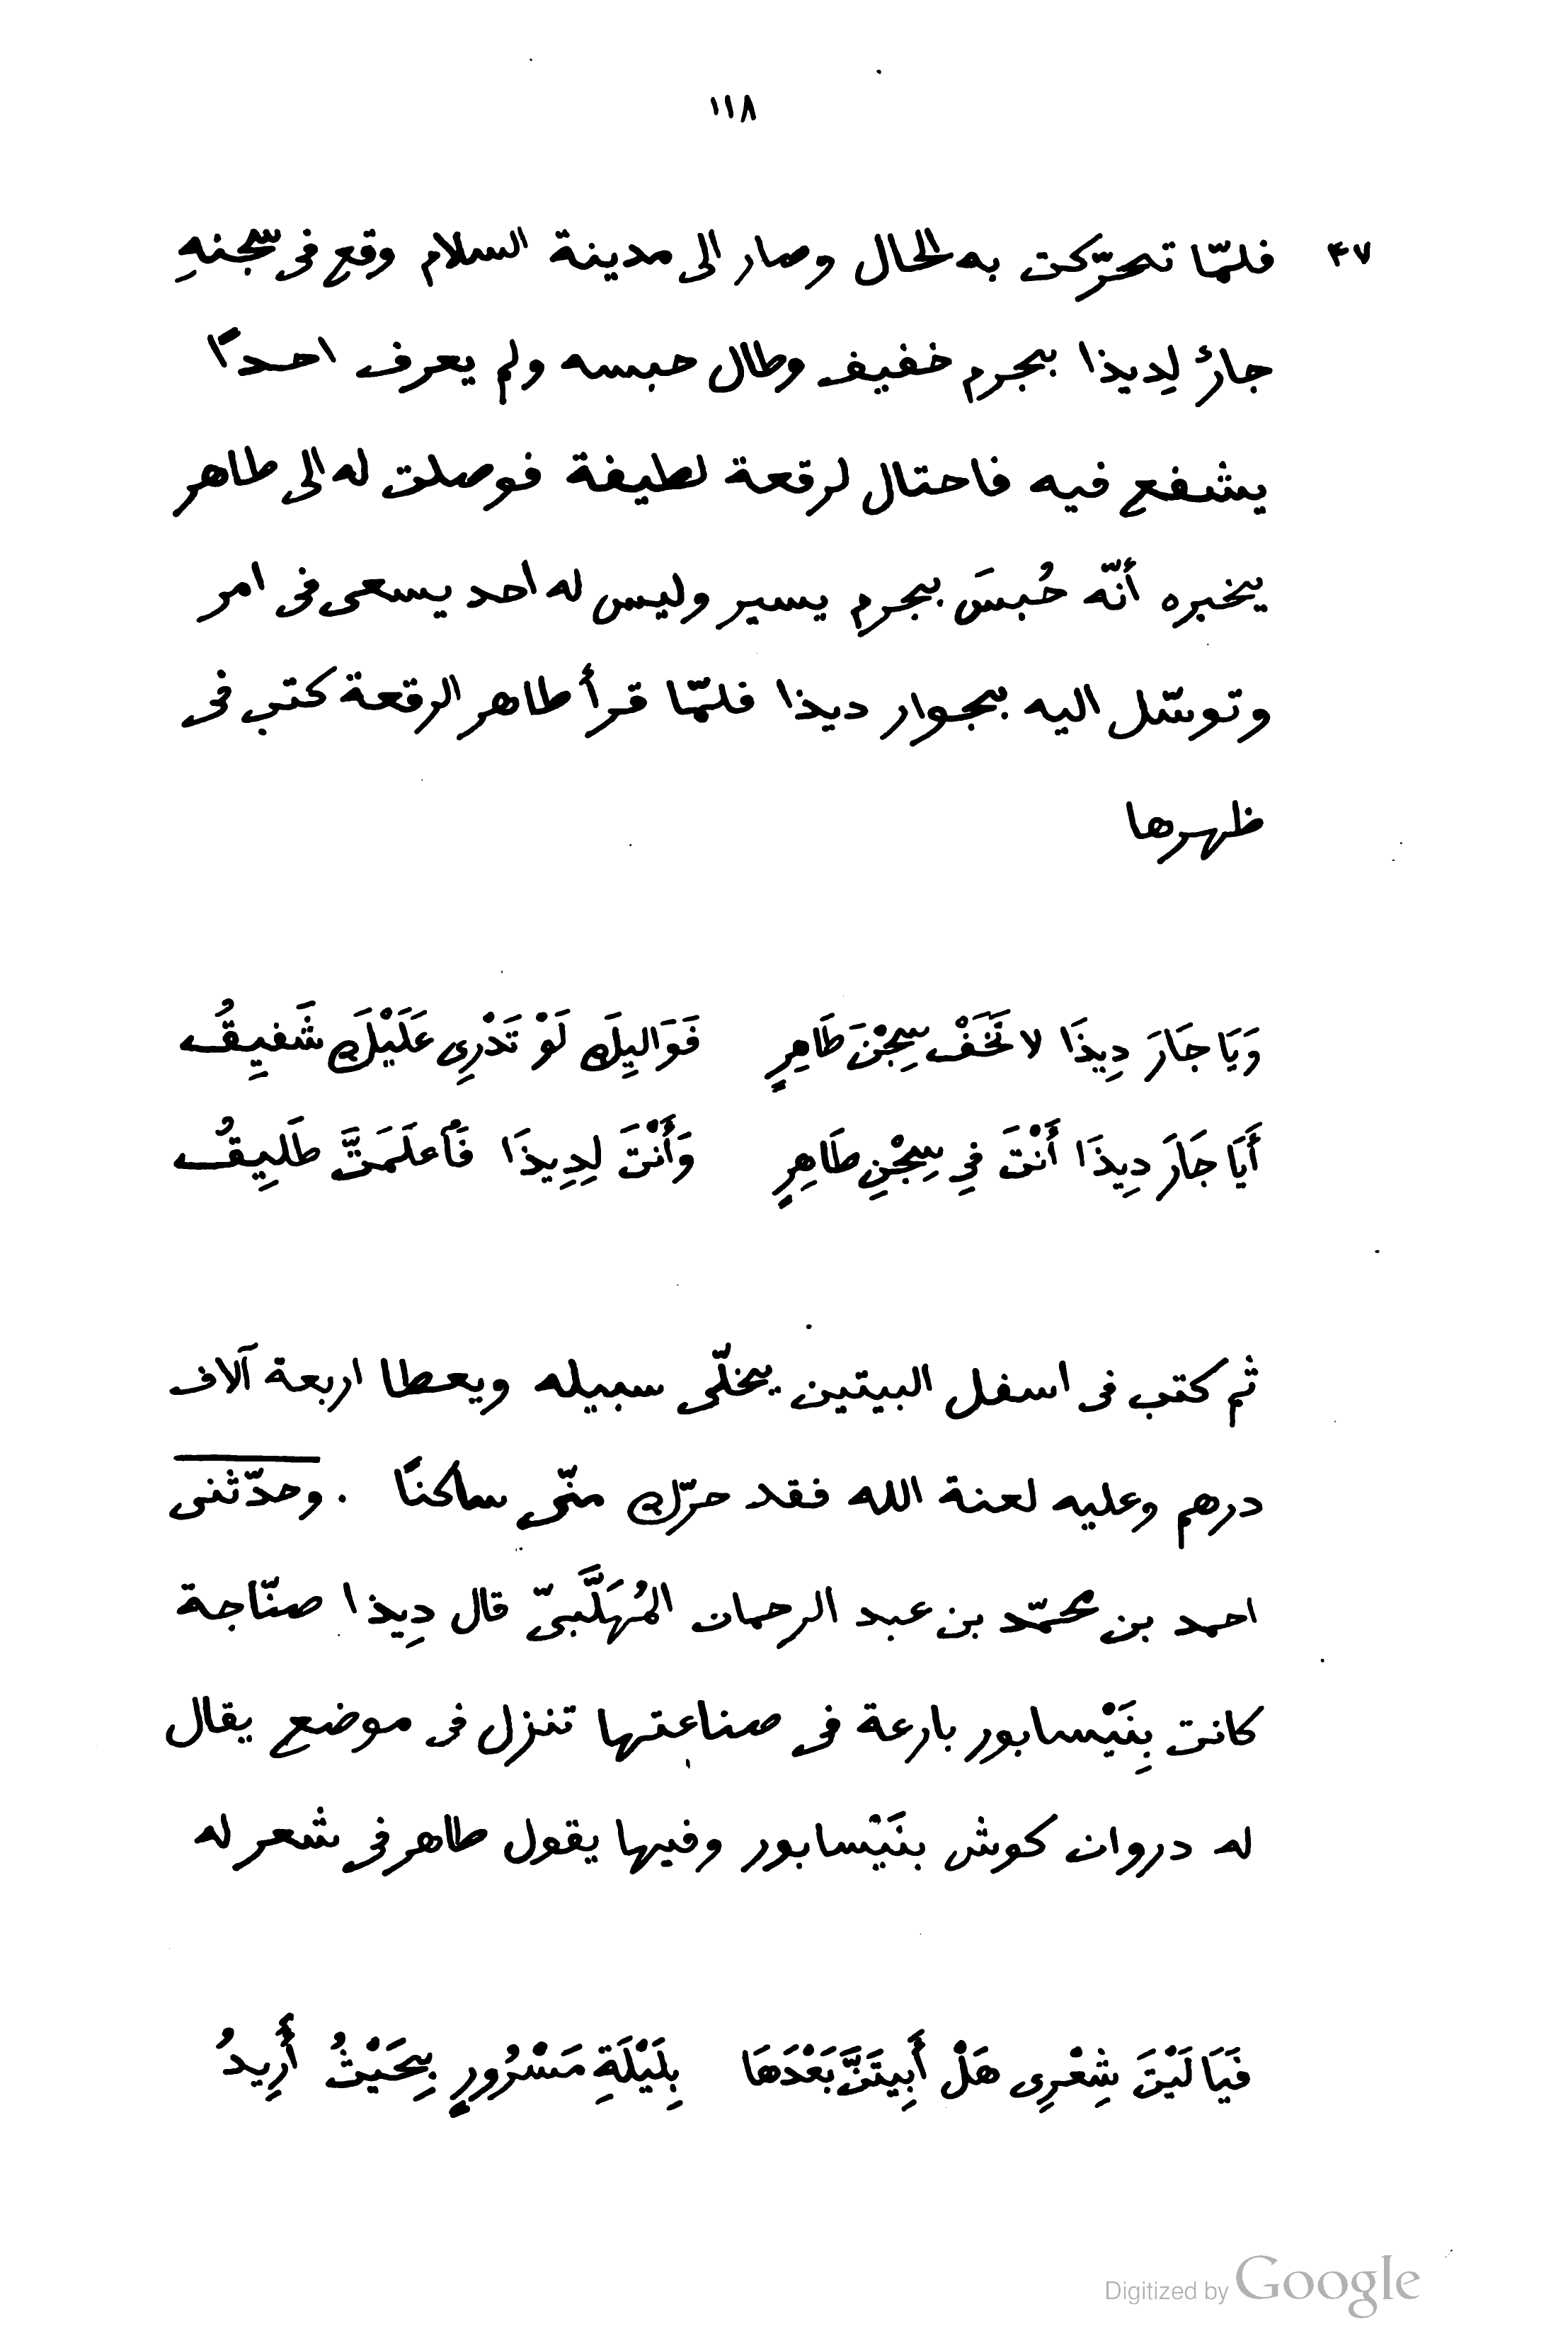 ١١٨
٤٧ فلمّا تحرّكت به الحال وصار الى مدينة السلام وقع فى سِجنهِ
جارٌ لِديذا بجرم خفيف وطال حبسه ولم يعرف احدًا
يشفع فيه فاحتال لرقعة لطيفة فوصلت له الى طاهر
يخبره أنّه حُبسَ بجرم يسير وليس له احد يسعى فى امر
وتوسّل اليه بجوار ديذا فلمّا قرأ طاهر الرقعة كتب فى
ظهرها
وَيَا جَارَ دِيذَا لا تَخَفْ سِجْنَ طَاهِرٍ فَوَاليِكَ لَوْ تَدْرِى عَلَيْكَ شَفيِقُ
أَيَا جَارَ دِيذَا أَنْتَ فِي سِجْنِ طَاهِرٍ وَأَنْتَ لِدِيذَا فَاُعلَمَتَّ طَلِيقُ
ثم كتب فى اسفل البيتين يخلّى سبيله ويعطا اربعة آلاف
درهم وعليه لعنة الله فقد حرّك منّى ساكنًا . وحدّثنى
احمد بن محمّد بن عبد الرحمان المُهَلَّبىّ قال دِيذا صنّاجة
كانت بِنَيْسابور بارعة فى صناعتها تنزل فى موضع يقال
له دروان كوش بنَيْسابور وفيها يقول طاهر فى شعر له
فَيَا لَيْتَ شِعْرِى هَلْ أَبِيتَنَّ بَعْدَهَا بِلَيْلَةِ مَسْرُورٍ بِحَيْثُ أُرِيدُ
Digitized by Google